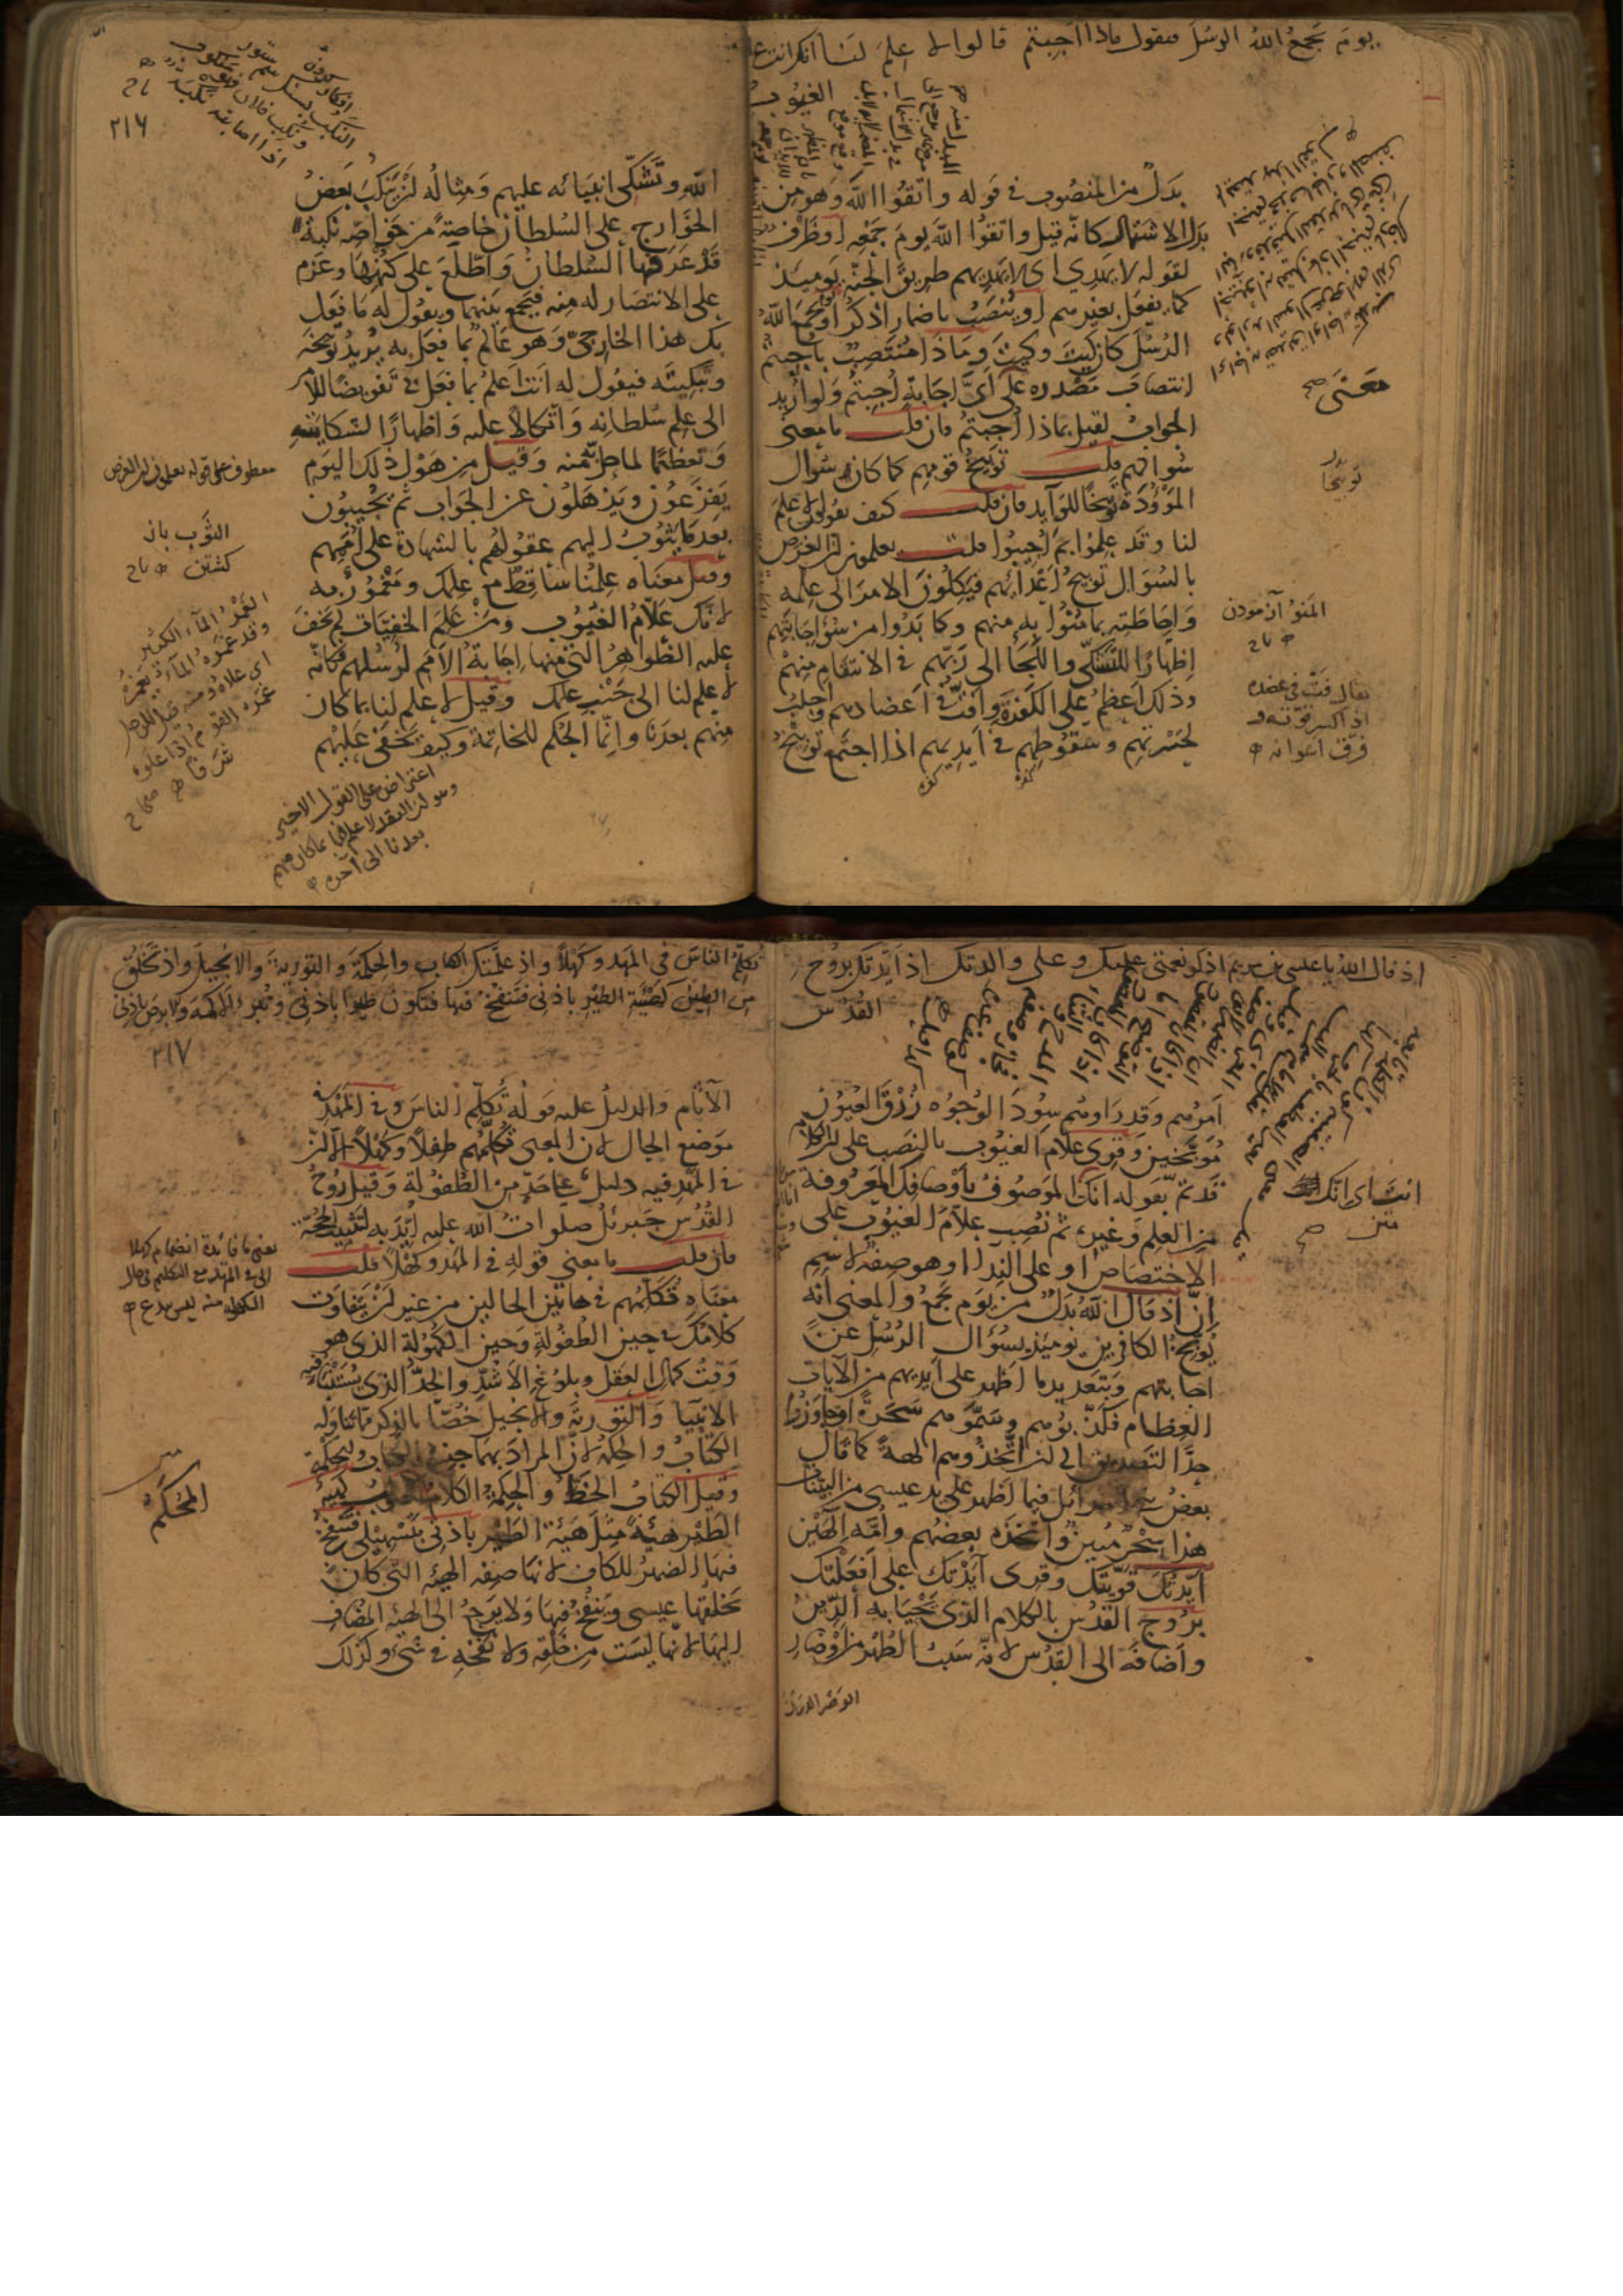 يوم يجمع الله الرسل فيقول ماذا اجبتم قالوا لا علم لنا انك انت علام
الغيوب
بدل من المنصوب في قوله واتقوا الله وهو من
بدل الاشتمال كانه قيل واتقوا الله يوم جمعه او ظرف
لقوله لا يهدي اي لا يهديهم طريق الجنة يوميذ
كما يفعل بغيرهم او ينصب باضمار اذكر او يوم يجمع الله
الرسل كان كيت وكيت وماذا منتصب باجبتم
انتصاب مصدره على اي اجابة اجبتم ولو اريد
الجواب لقيل بماذا اجبتم فان قلت ما معنى
سوالهم قلت توبيخ قومهم كما كان سوال
الموؤدة توبيخا للوآيد فان قلت كيف يقولون لا علم
لنا وقد علموا بم اجيبوا قلت يعلمون ان الغرض
بالسوال توبيخ اعدائهم فيكلون الامر الى علمه
واحاطته بما منوا به منهم وكابدوا من سوء اجابتهم
اظهارا للتشكي واللجأ الى ربهم في الانتقام منهم
وذلك اعظم على الكفرة وافت في اعضادهم واجلب
لحسرتهم وسقوطهم في ايديهم اذا اجتمع توبيخ
معنى
توبيخا
المنو آزمودن
تاج
يقال فت في عضده
اذا كسر قوته و
فرق اعوانه
٢١٦
تاج
الله وتشكي انبيائه عليهم ومثاله ان ينكب بعض
الخوارج على السلطان خاصة من خواصه نكبة
قد عرفها السلطان واطلع على كنهها وعزم
على الانتصار له منه فيجمع بينهما ويقول له ما فعل
بك هذا الخارجي وهو عالم بما فعل به يريد توبيخه
وتبكيته فيقول له انت اعلم بما فعل بي تفويضا للامر
الى علم سلطانه واتكالا عليه واظهارا للشكاية
وتعظيما لما حل به منه وقيل من هول ذلك اليوم
يفزعون ويذهلون عن الجواب ثم يجيبون
بعد ما يثوب اليهم عقولهم بالشهادة على اممهم
وقيل معناه علمنا ساقط مع علمك ومغمور به
لانك علام الغيوب ومن علم الخفيات لم يخف
عليه الظواهر التي منها اجابة الامم لرسلهم فكانه
لا علم لنا الى جنب علمك وقيل لا علم لنا بما كان
منهم بعدنا وانما الحكم للخاتمة وكيف يخفى عليهم
معطوف على قوله يعلمون ان الغرض
الثوب باز
كشتن تاج
الغمر الماء الكثير
وقد غمره الماء يغمره
اي علاه ومنه قيل للرجل
غمره القوم اذا علوه
شرفا صحاح
اعتراض على القول الاخير
وهو ان التقدير لا علم لنا بما كان منهم
بعدنا الى آخره
اذ قال الله يا عيسى بن مريم اذكر نعمتي عليك وعلى والدتك اذ ايدتك بروح
القدس
امرهم وقد راوهم سود الوجوه زرق العيون
موبخين وقرئ علام الغيوب بالنصب على ان الكلام
قد تم بقوله انك انت الموصوف باوصافك المعروفة
من العلم وغيره ثم نصب علام الغيوب على
الاختصاص او على الندا او هو صفة لاسم
ان اذ قال الله بدل من يوم يجمع والمعنى انه
يوبخ الكافرين يومئذ بسؤال الرسل عن
اجابتهم وبتعديد ما اظهر على ايديهم من الآيات
العظام فكذبوهم وسموهم سحرة او جاوزوا
حد التصديق الى ان اتخذوهم الهة كما قال
بعض بني اسرائيل فيما اظهر على يد عيسى من البينات
هذا سحر مبين واتخذه بعضهم وامه الهين
ايدتك قويتك وقرئ آيدتك على افعلتك
بروح القدس بالكلام الذي يحيا به الدين
واضافه الى القدس لانه سبب الطهر من اوضار
الوضر الدرن
انت اي انك
متن
تكلم الناس في المهد وكهلا واذ علمتك الكتاب والحكمة والتورية والانجيل واذ تخلق
من الطين كهيئة الطير باذني فتنفخ فيها فتكون طيرا باذني وتبرئ الاكمه والابرص باذني
٢١٧
الآثام والدليل عليه قوله تكلم الناس وفي المهد في
موضع الحال لان المعنى تكلمهم طفلا وكهلا الا ان
في المهد فيه دليل على حد من الطفولة وقيل روح
القدس جبرئل صلوات الله عليه ايد به لتثبيت الحجة
فان قلت ما معنى قوله في المهد وكهلا قلت
معناه تكلمهم في هاتين الحالين من غير ان يتفاوت
كلامك في حين الطفولة وحين الكهولة الذي هو
وقت كمال العقل وبلوغ الاشد والحد الذي يستنبأ فيه
الانبيا والتورية والانجيل خصا بالذكر مما تناوله
الكتاب والحكمة لان المراد بهما جنس الكتاب والحكمة
وقيل الكتاب الخط والحكمة الكلام المحكم الصواب كهيئة
الطير هيئة مثل هيئة الطير باذني بتسهيلي فتنفخ
فيها الضمير للكاف لانها صفة الهيئة التي كان
يخلقها عيسى وينفخ فيها ولا يرجع الى الهيئة المضاف
اليها لانها ليست من خلقه ولا نفخه في شيء وكذلك
يعني ما فائدة انضمام كهلا
الى في المهد مع التكليم في حال
الكهولة منه ليس ببدع
المحكم